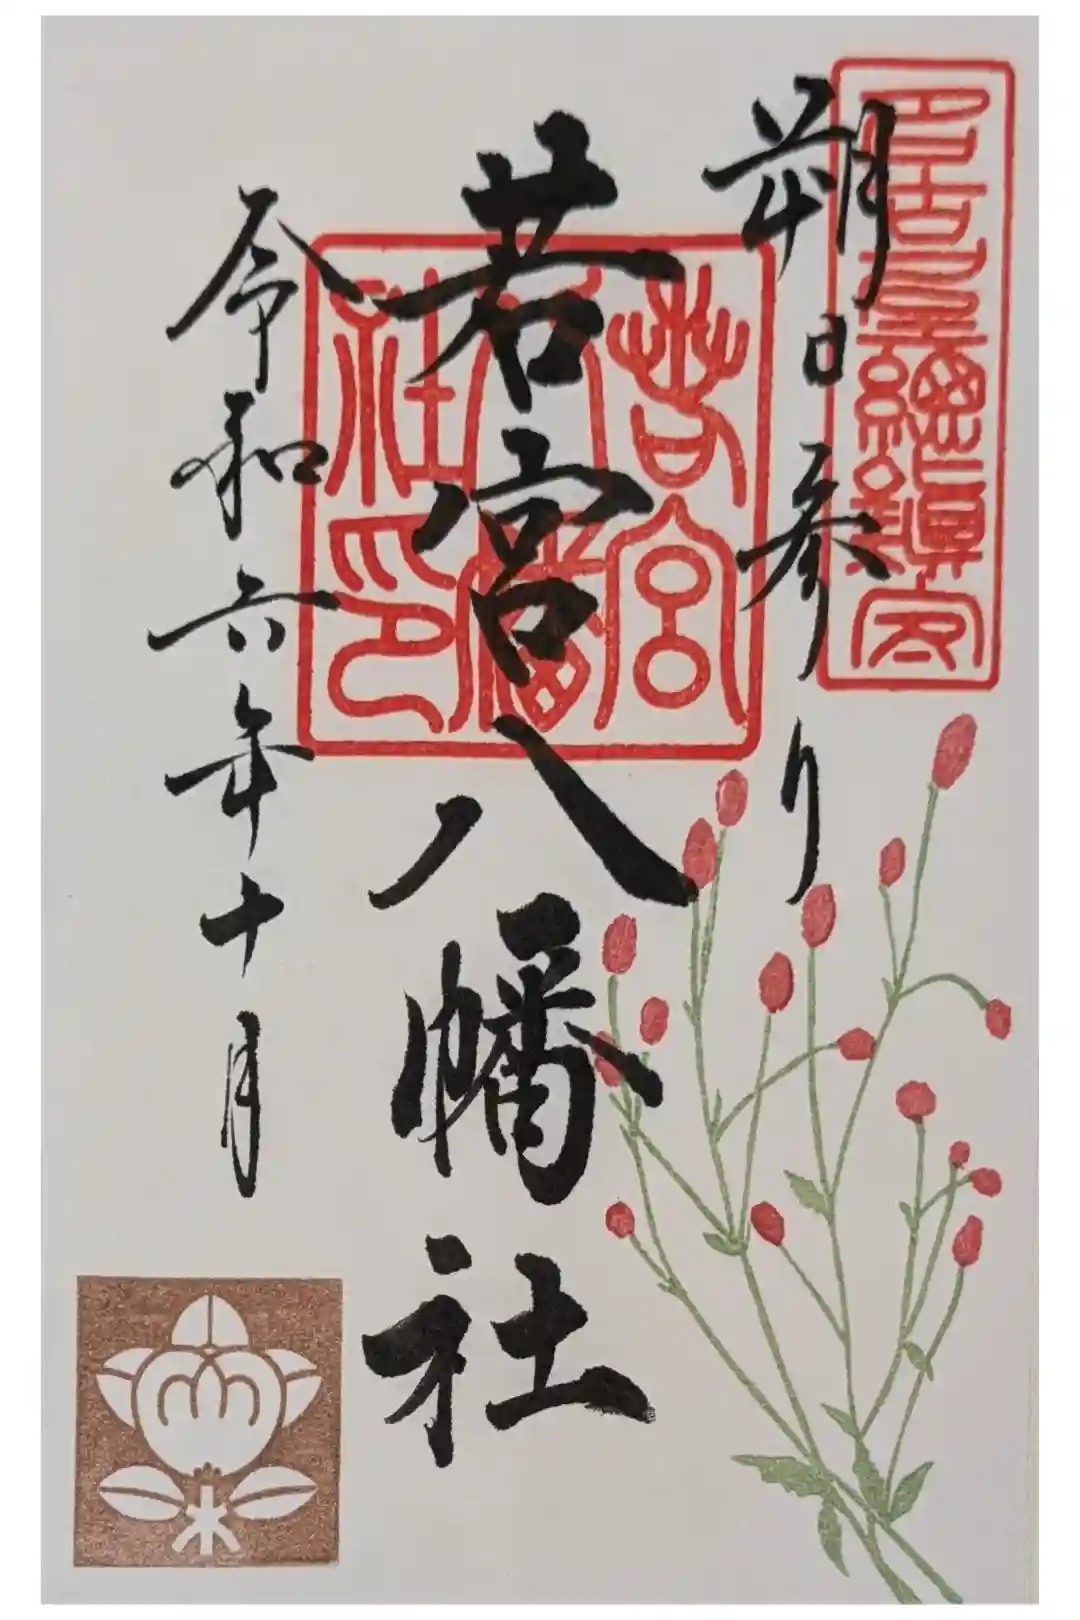 名古屋総鎮守
朔日参り
若宮八幡社
若宮八幡社印
令和六年十月